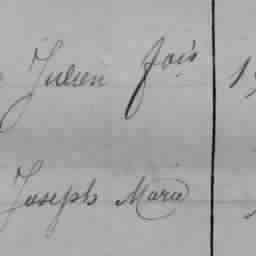 Julien fois
Joseph Marie